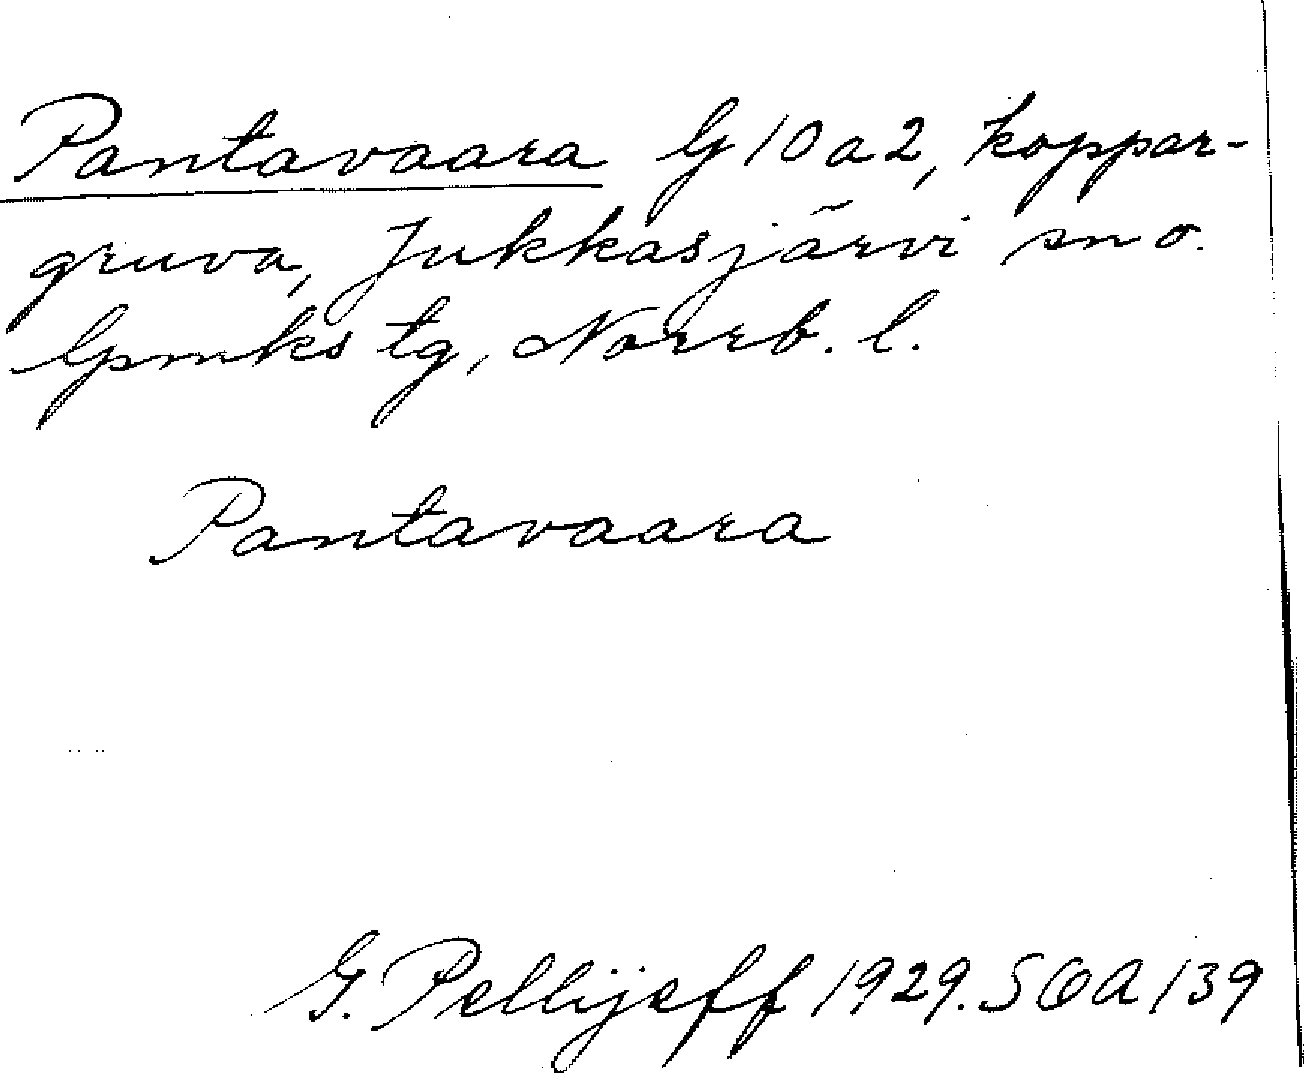 Pantavaara G10a2, koppar-
gruva, Jukkasjärvi sn o.
Gpmks tg, Norrb. l.
Pantavaara
G. Pellijeff 1929. SOA 139